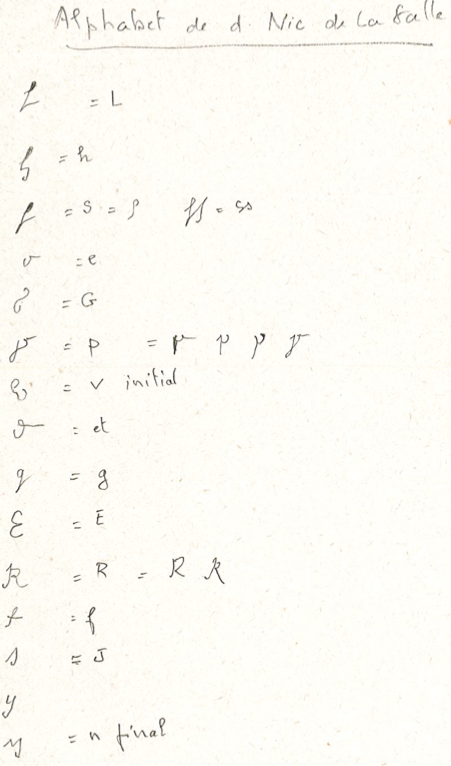 Alphabet de d. Nic de La Salle
L = L
h = h
ſ = s = ſ ſſ = ss
v = e
G = G
p = p = p p p p
v = v initial
& = et
g = g
E = E
R = R = R R
f = f
s = J
y
y = n final